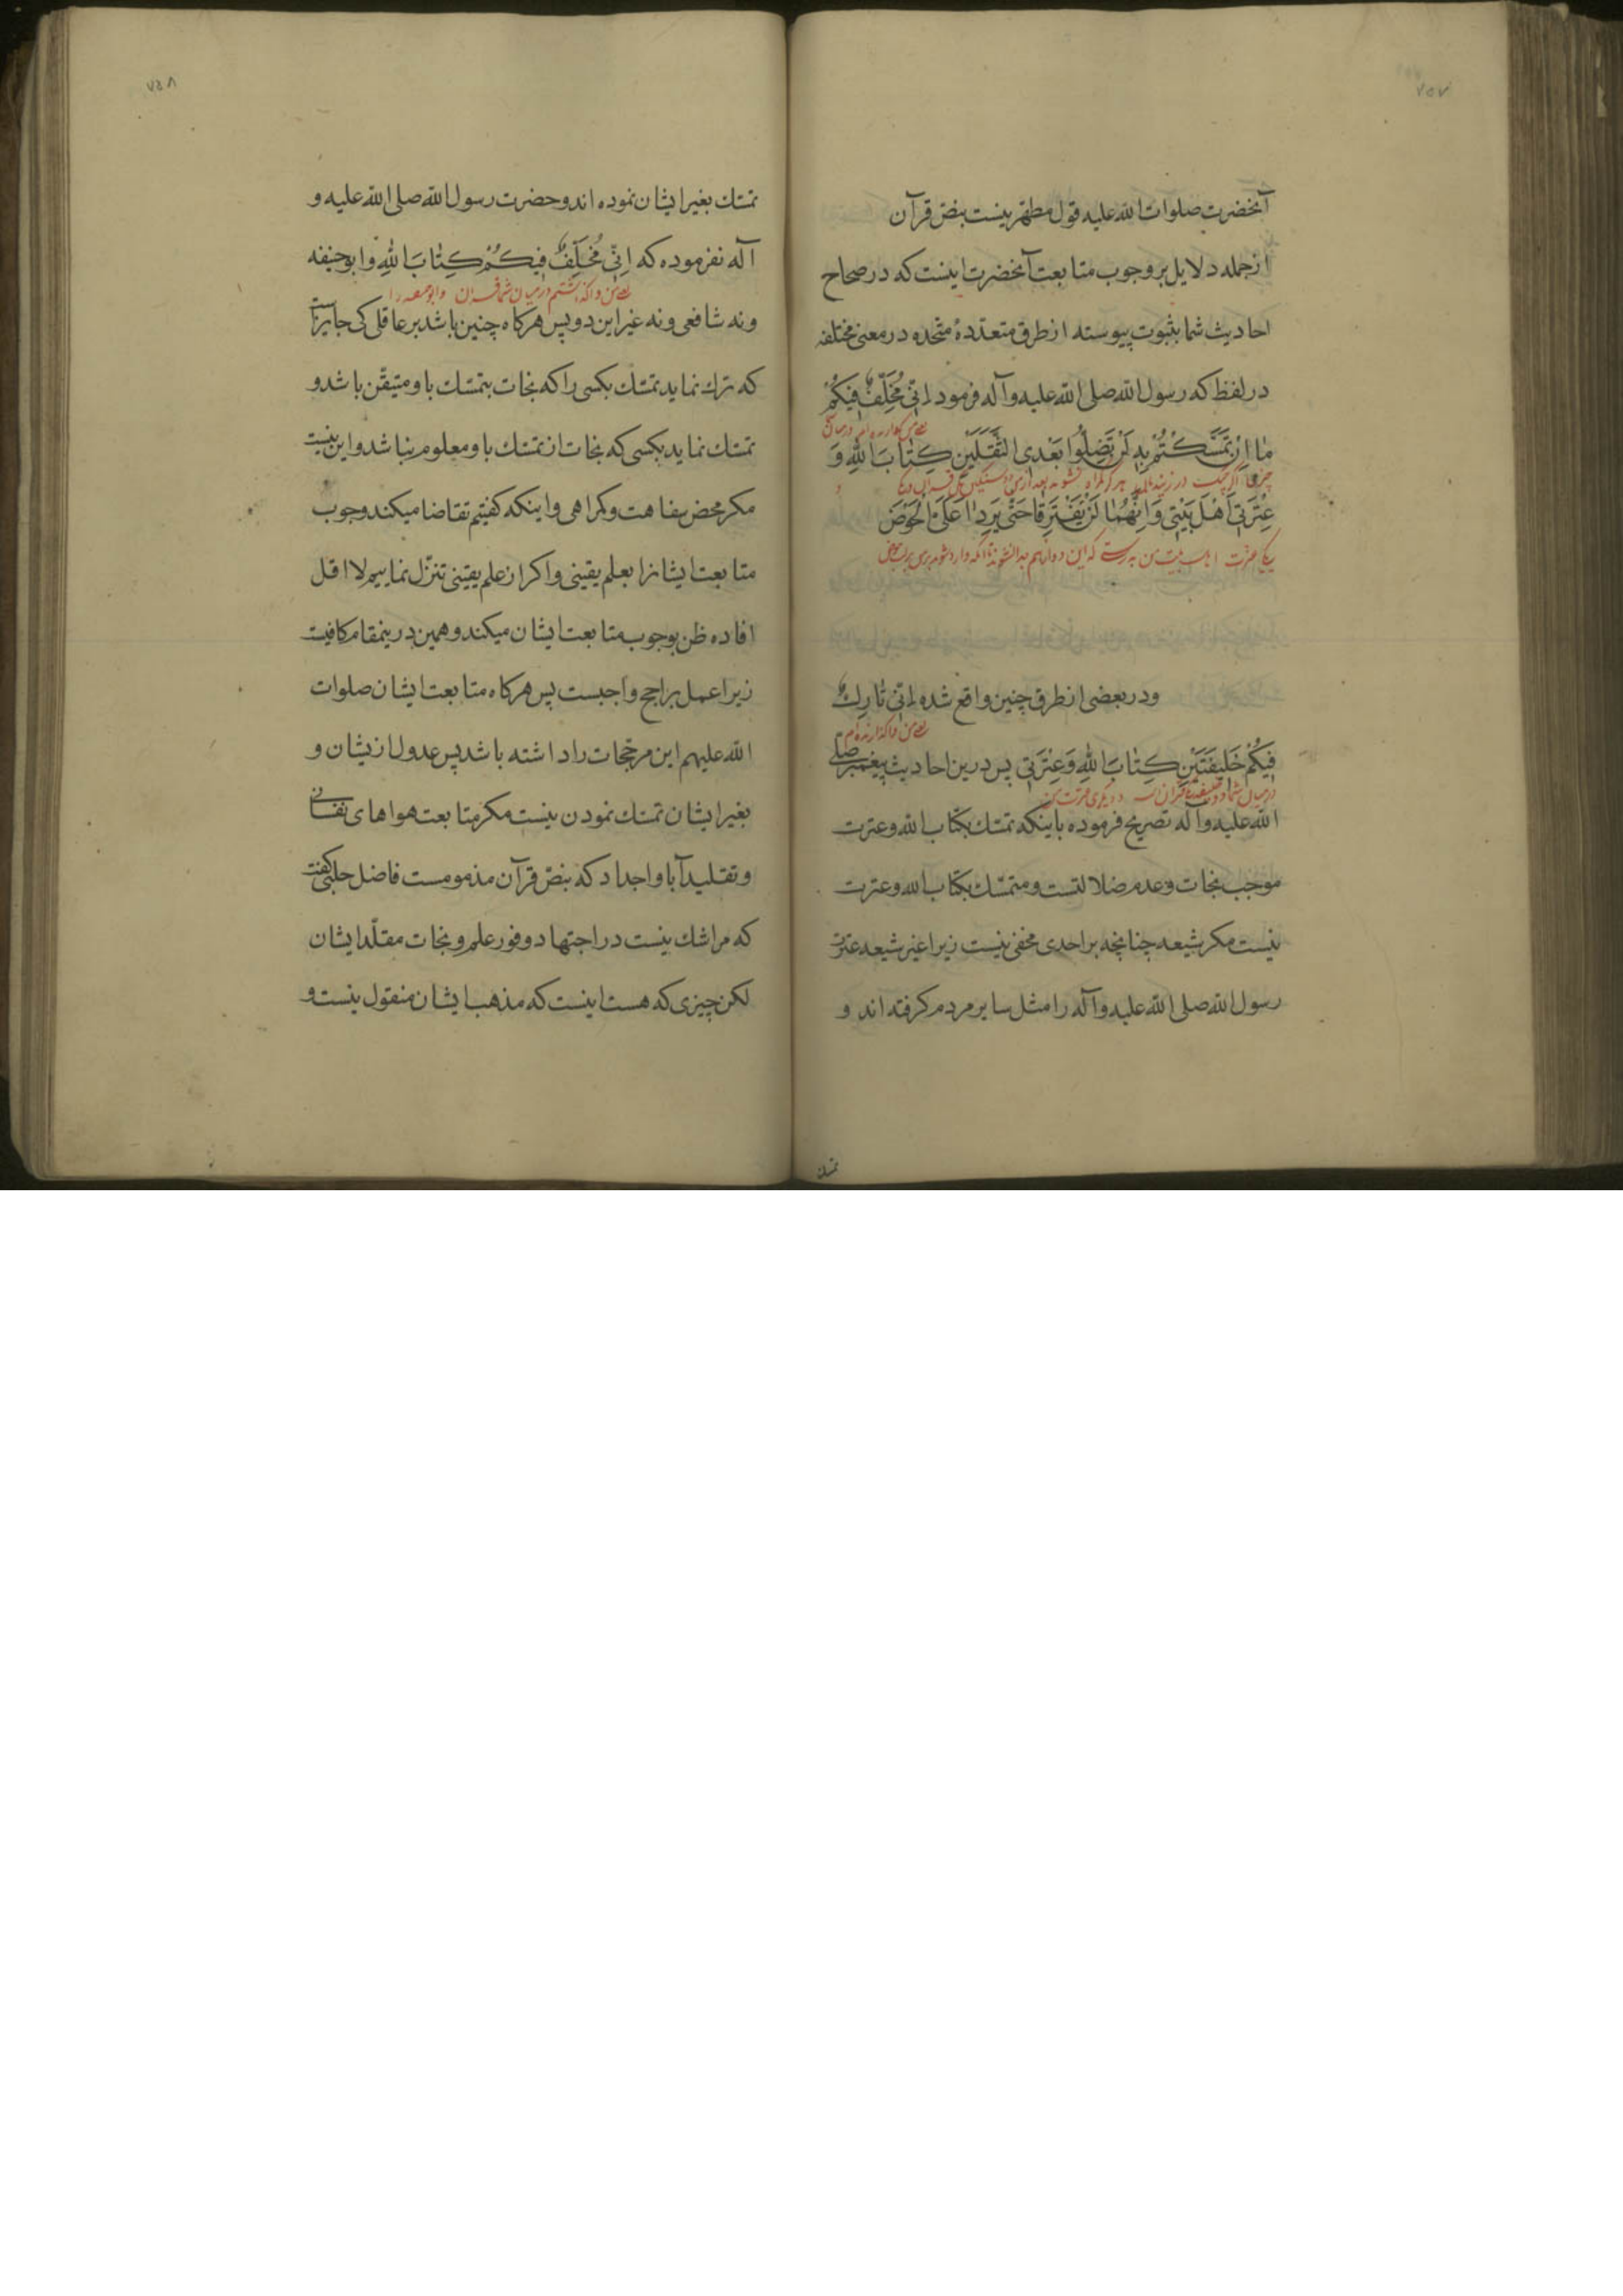 ٧٥٧
آنحضرت صلوات الله علیه قول مطهر بنیست بنص قرآن
از جمله دلایل بر وجوب متابعت آنحضرت اینست که در صحاح
احادیث شما بثبوت پیوسته از طرق متعددهٔ متحده در معنی مختلفه
در لفظ که رسول الله صلی الله علیه وآله فرمود اِنّی مُخَلِّفٌ فیکُمْ
مٰا اِنْ تَمَسَّکْتُمْ بِهِ لَنْ تَضِلُّوا بَعْدی الثَّقَلَیْنِ کِتٰابَ اللّٰهِ وَ
عِتْرَتی اَهْلَ بَیْتی وَاِنَّهُمٰا لَنْ یَفْتَرِقٰا حَتّٰی یَرِدٰا عَلَیَّ الْحَوْضَ
یکی عترت اهل بیت من بدرستی که این دو از هم جدا نشوند تا آنکه وارد شوند بر من بر لب حوض
ودر بعضی از طرق چنین واقع شده اِنّی تٰارِكٌ
فیکُمْ خَلیفَتَیْنِ کِتٰابَ اللّٰهِ وَعِتْرَتی پس درین احادیث پیغمبر صلی
الله علیه وآله تصریح فرموده باینکه تمسّك بکتاب الله وعترت
موجب نجات وعدم ضلالتست ومتمسّك بکتاب الله وعترت
نیست مکر شیعه چنانچه بر احدی مخفی نیست زیرا غیر شیعه عترت
رسول الله صلی الله علیه وآله را مثل سایر مردم کرفته اند و
تمسك
٧٥٨
تمسّك بغیر ایشان نموده اند وحضرت رسول الله صلی الله علیه و
آله نفرموده که اِنّی مُخَلِّفٌ فیکُمْ کِتٰابَ اللّٰهِ وابوحنیفه
یعنی من واگذاشتم در میان شما قرآن وابوحنیفه را
ونه شافعی ونه غیر این دو پس هرکاه چنین باشد بر عاقلی کی جایز است
که ترك نماید تمسّك بکسی را که نجات بتمسّك باو متیقّن باشد و
تمسّك نماید بکسی که نجات از تمسّك باو معلوم نباشد واین نیست
مکر محض سفاهت وکمراهی واینکه کفتیم تقاضا میکند وجوب
متابعت ایشانرا بعلم یقینی واکر از علم یقینی تنزّل نماییم لااقل
افاده ظن بوجوب متابعت ایشان میکند وهمین درینمقام کافیست
زیرا عمل براجح واجبست پس هرکاه متابعت ایشان صلوات
الله علیهم این مرجّحات را داشته باشد پس عدول ازیشان و
بغیر ایشان تمسّك نمودن نیست مکر متابعت هواهای نفسانی
وتقلید آبا واجداد که بنصّ قرآن مذمومست فاضل حلبی کفت
که مرا شك نیست در اجتهاد و وفور علم ونجات مقلّد ایشان
لکن چیزی که هست اینست که مذهب ایشان منقول نیست و